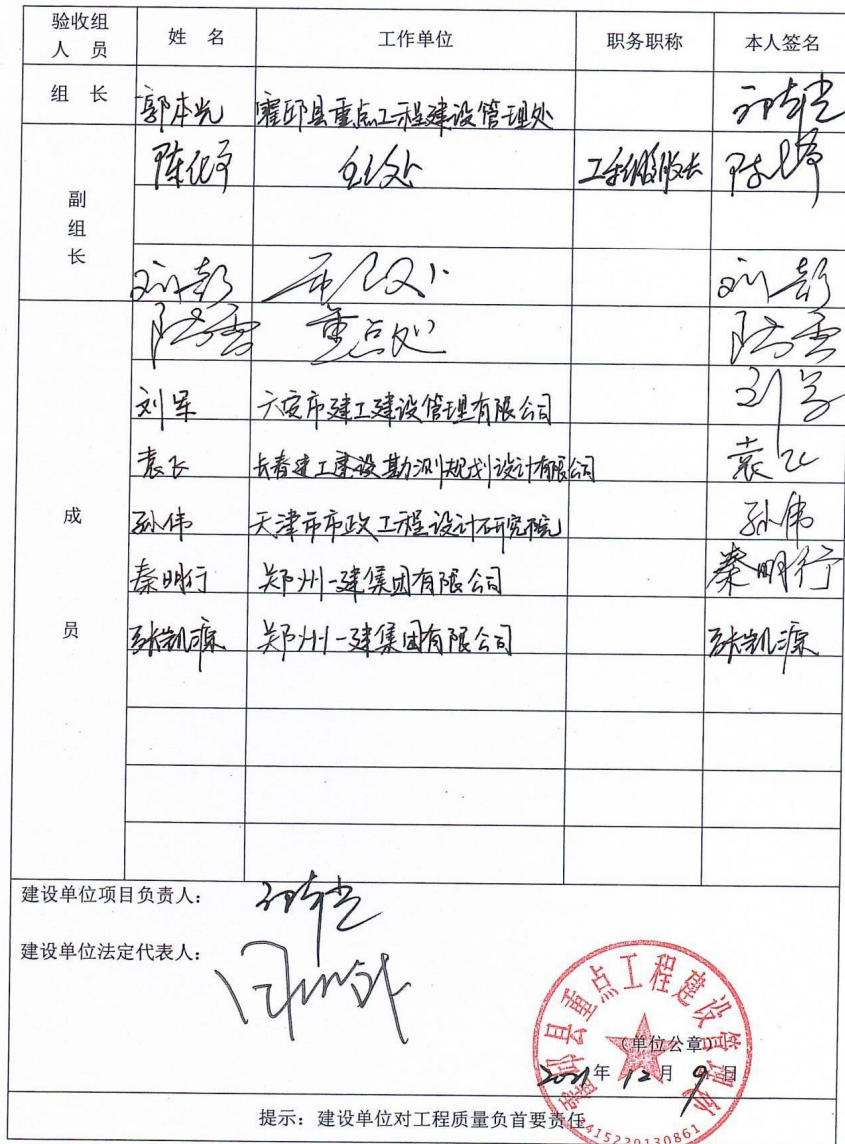 验收组人员 姓 名 工作单位 职务职称 本人签名
组 长 郭本光 霍邱县重点工程建设管理处
副组长 陈
刘彭 刘彭
重点处
刘军 六安市建工建设管理有限公司 刘军
袁飞 长春建工建设勘测规划设计有限公司 袁飞
成员 孙伟 天津市市政工程设计研究院 孙伟
秦明行 郑州一建集团有限公司 秦明行
张凯源 郑州一建集团有限公司 张凯源
建设单位项目负责人：
建设单位法定代表人：
霍邱县重点工程建设管理处
（单位公章）
2021年 12月 9日
提示：建设单位对工程质量负首要责任
3415220130861